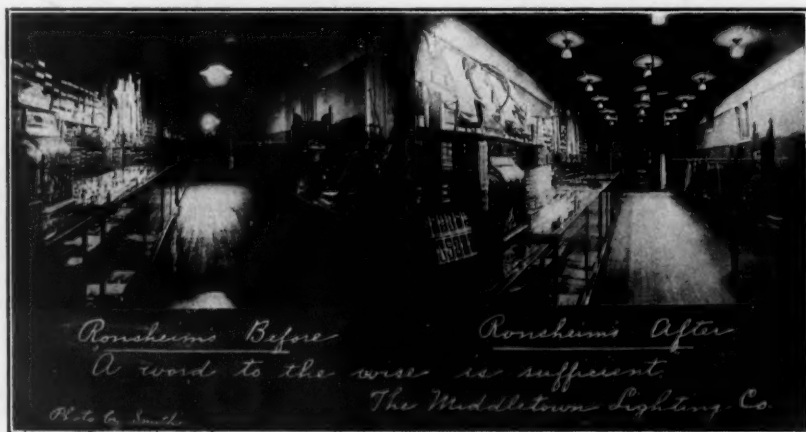 Ronsheim's Before
Ronsheim's After
A word to the wise is sufficient.
The Middletown Lighting Co.
Photo by Smith